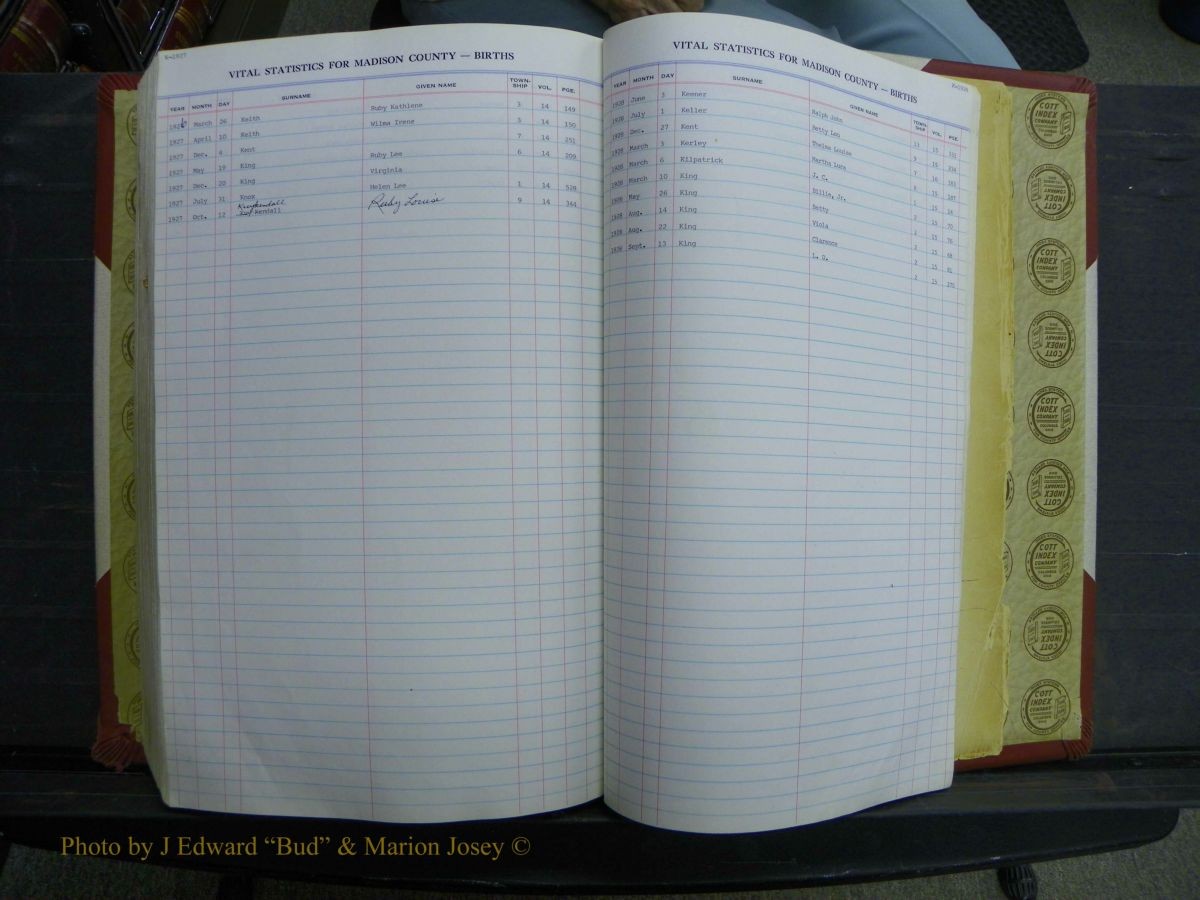 K-1927
VITAL STATISTICS FOR MADISON COUNTY — BIRTHS
YEAR MONTH DAY SURNAME GIVEN NAME TOWN-SHIP VOL. PGE.
1926 March 26 Keith Ruby Kathlene 3 14 149
1927 April 10 Keith Wilma Irene 5 14 150
1927 Dec. 4 Kent 7 14 251
1927 May 19 King Ruby Lee 6 14 209
1927 Dec. 20 King Virginia
1927 July 31 Knox Helen Lee 1 14 528
1927 Oct. 12 Kuykendall Kendall Ruby Louise 9 14 344
K-1928
VITAL STATISTICS FOR MADISON COUNTY — BIRTHS
YEAR MONTH DAY SURNAME GIVEN NAME TOWN-SHIP VOL. PGE.
1928 June 3 Keener Ralph John 11 15
1928 July 1 Keller Betty Lou 9 15
1928 Dec. 27 Kent Thelma Louise 7
1928 March 3 Kerley Martha Lura 15
1928 March 6 Kilpatrick J. C. 1 15
1928 March 10 King Billie, Jr. 2 15 70
1928 May 26 King Betty 2 15 76
1928 Aug. 14 King Viola 2 15
1928 Aug. 22 King Clarence 2 15 81
1928 Sept. 13 King L. O. 2 15
COTT INDEX COMPANY COLUMBUS OHIO
Photo by J Edward “Bud” & Marion Josey ©